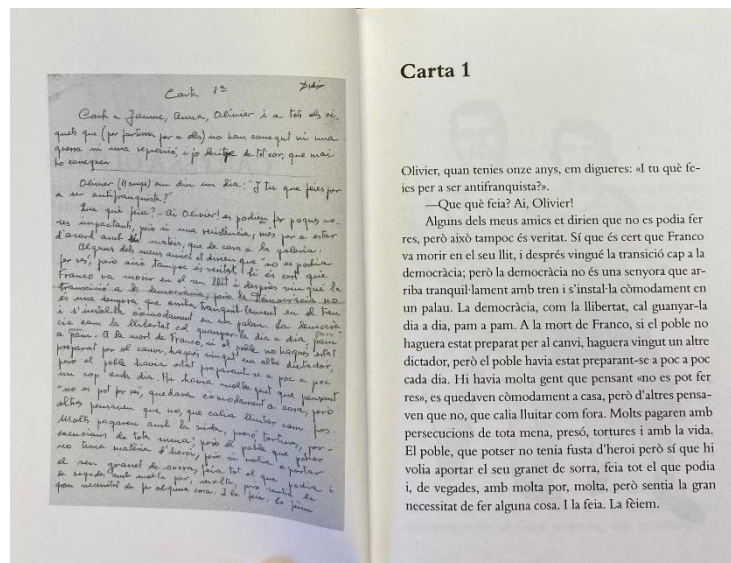 Carta 1ª
Carta a Jaume, Anna, Olivier i a tots els
quels que (per fortuna per a ells) no han conegut ni una
guerra ni una repressió, i jo desitge de tot cor, que mai
ho coneguen
Olivier em diu un dia: "I tu que feies per
a ser antifranquista?"
Que què feia? - Ai Olivier! es podien fer poques
res impactants, però ni una resistència, més per a estar
d'acord amb mateix, que de cara a la galeria.
Alguns dels meus amics et dirien que "no es podia
fer res", però això tampoc és veritat. Si és cert que
Franco va morir en el seu llit i després vingué la
transició a la democràcia, però la democràcia no
és una senyora que arriba tranquil·lament en el tren
i s'instal·la còmodament en un palau. La democrà
cia com la llibertat cal guanyar-la dia a dia, pam
a pam. A la mort de Franco, si el poble no hagués estat
preparat per al canvi, hagués vingut un altre dictador,
però el poble havia estat preparant-se a poc a poc
un cop cada dia. Hi havia molta gent que pensant
"no es pot fer res", quedaven còmodament a casa, però
altres pensaven que no, que calia lluitar com fos
Molts pagaren amb la vida, presó, tortures, per-
secucions de tota mena; però el poble que potser
no tenia matèria d'heroi, però si volia aportar
el seu granet de sorra, feia tot el que podia i
de vegades amb molta por, molta, però sentia la
gran necessitat de fer alguna cosa. I la feia. La fèiem
Carta 1
Olivier, quan tenies onze anys, em digueres: «I tu què fe-
ies per a ser antifranquista?».
—Que què feia? Ai, Olivier!
Alguns dels meus amics et dirien que no es podia fer
res, però això tampoc és veritat. Sí que és cert que Franco
va morir en el seu llit, i després vingué la transició cap a la
democràcia; però la democràcia no és una senyora que ar-
riba tranquil·lament amb tren i s'instal·la còmodament en
un palau. La democràcia, com la llibertat, cal guanyar-la
dia a dia, pam a pam. A la mort de Franco, si el poble no
haguera estat preparat per al canvi, haguera vingut un altre
dictador, però el poble havia estat preparant-se a poc a poc
cada dia. Hi havia molta gent que pensant «no es pot fer
res», es quedaven còmodament a casa, però d'altres pensa-
ven que no, que calia lluitar com fora. Molts pagaren amb
persecucions de tota mena, presó, tortures i amb la vida.
El poble, que potser no tenia fusta d'heroi però sí que hi
volia aportar el seu granet de sorra, feia tot el que podia
i, de vegades, amb molta por, molta, però sentia la gran
necessitat de fer alguna cosa. I la feia. La fèiem.